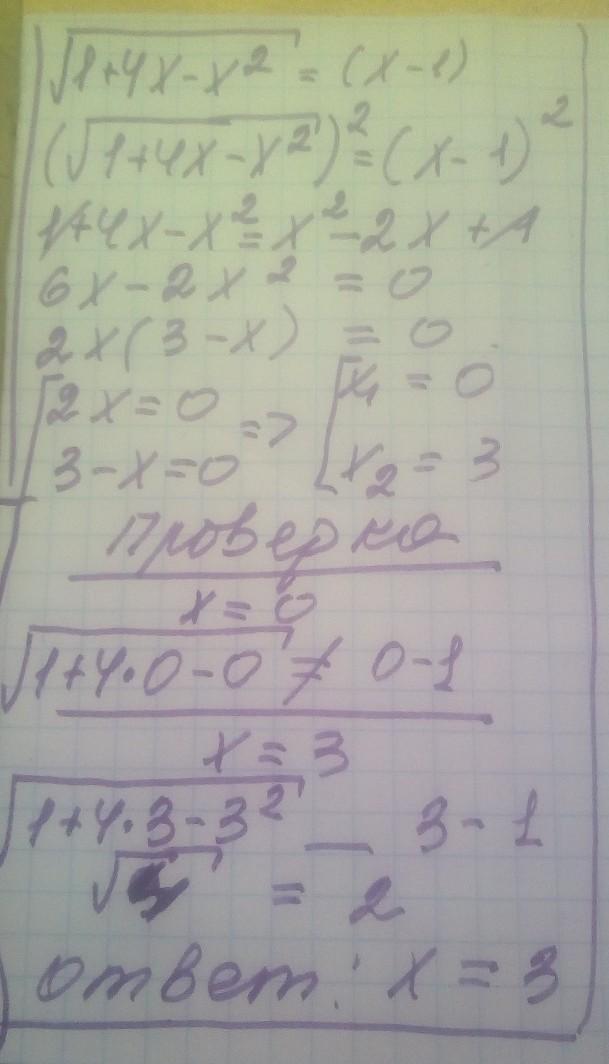 √1+4x-x² = (x-1)
(√1+4x-x²)² = (x-1)²
1+4x-x² = x²-2x+1
6x-2x² = 0
2x(3-x) = 0
[2x=0 => [x₁ = 0
3-x=0 x₂ = 3
Проверка
x = 0
√1+4·0-0 ≠ 0-1
x = 3
√1+4·3-3² _ 3-1
√4 = 2
ответ: x = 3